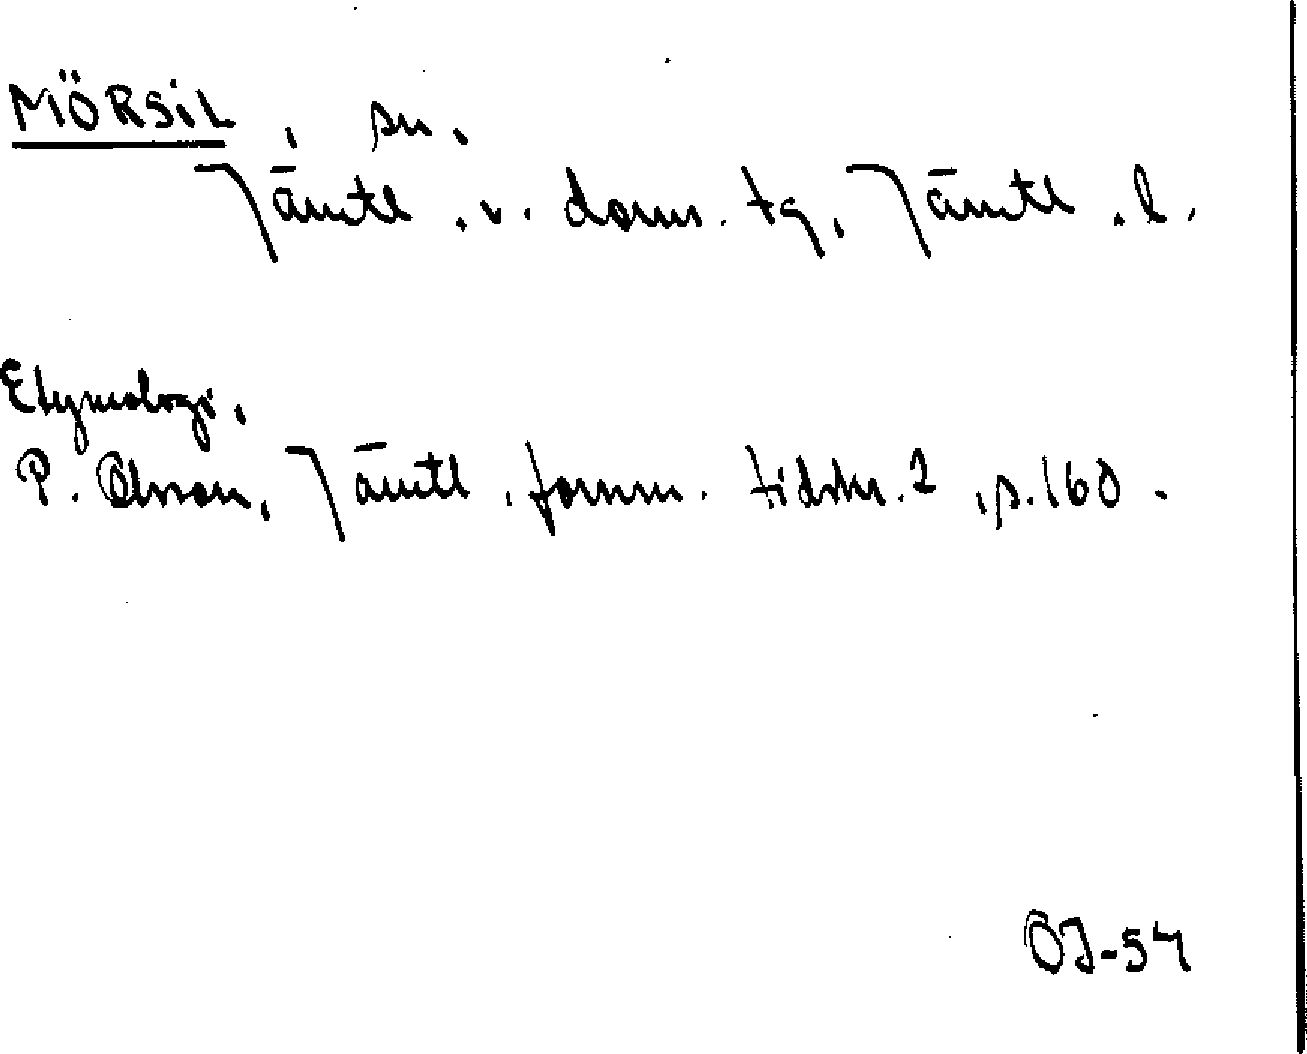 MÖRSIL, sn.
Jämtl. v. doms. tg, Jämtl. l.
Etymologi.
P. Olsson, Jämtl. fornm. tidskr. 2, s. 160.
OJ-54